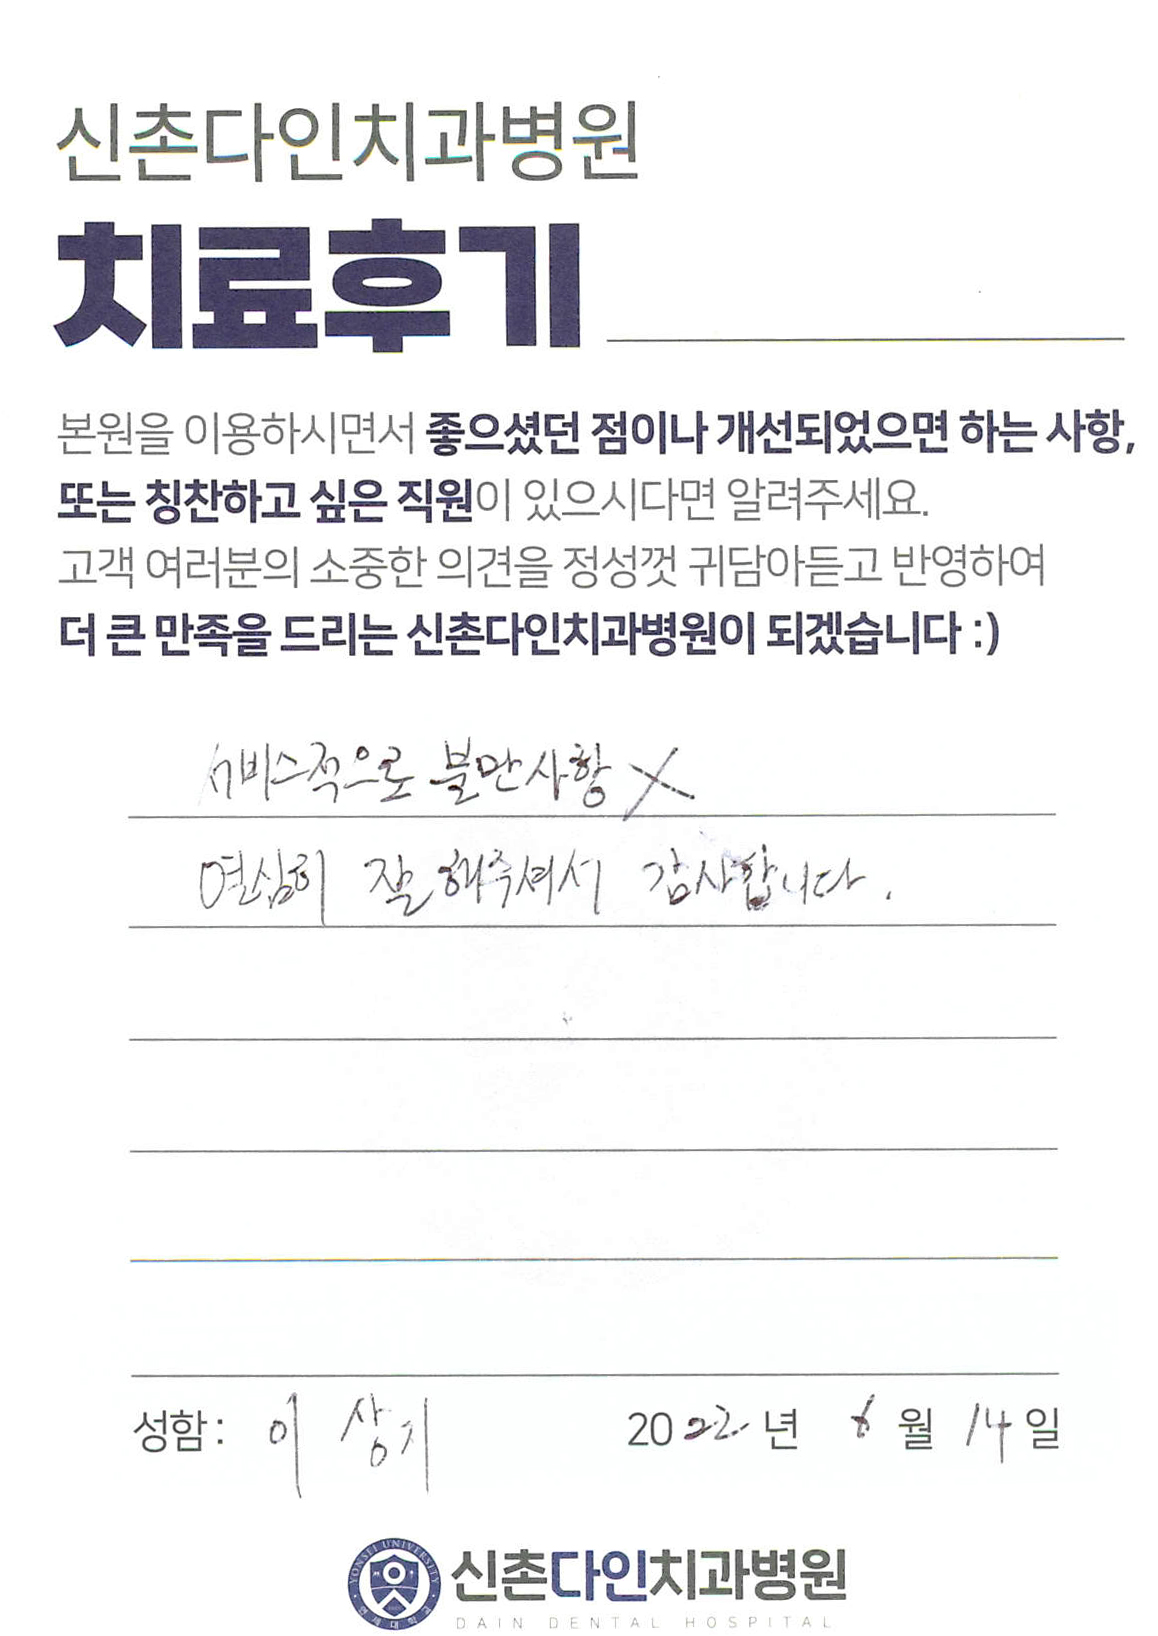 신촌다인치과병원
치료후기
본원을 이용하시면서 좋으셨던 점이나 개선되었으면 하는 사항,
또는 칭찬하고 싶은 직원이 있으시다면 알려주세요.
고객 여러분의 소중한 의견을 정성껏 귀담아듣고 반영하여
더 큰 만족을 드리는 신촌다인치과병원이 되겠습니다 :)
서비스적으로 불만사항 X
열심히 잘 해주셔서 감사합니다.
성함 : 이상기 2022년 6월 14일
YONSEI UNIVERSITY
연세대학교
신촌다인치과병원
DAIN DENTAL HOSPITAL